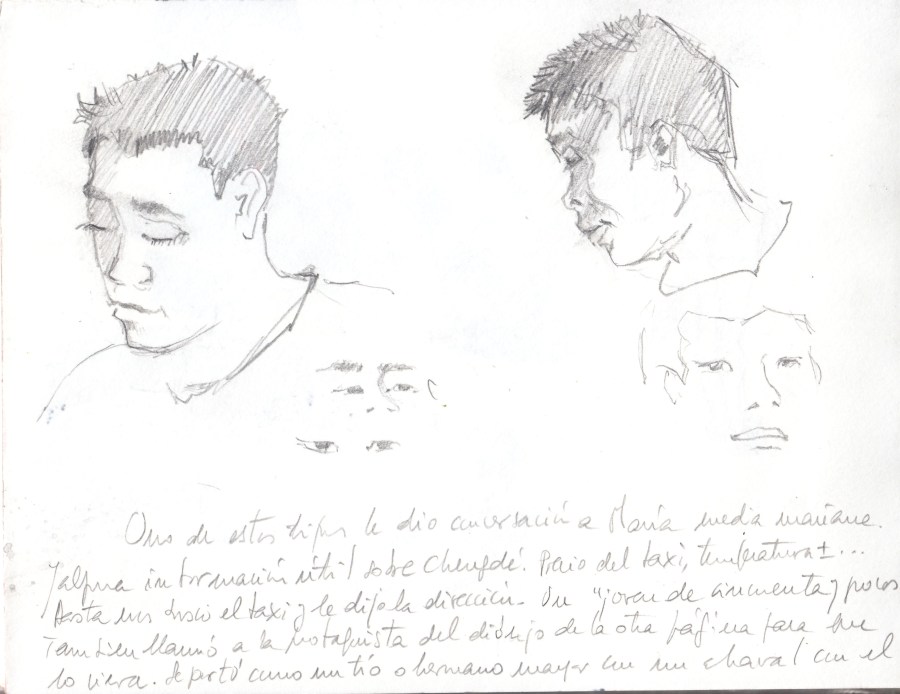 Uno de estos tipos le dio conversación a María media mañana.
y alguna información útil sobre Chengdé. Precio del taxi, temperatura ± ...
Hasta nos buscó el taxi y le dijo la dirección. Un "joven de cincuenta y pocos
También llamó a la protagonista del dibujo de la otra página para que
lo viera. Se portó como un tío o hermano mayor con un chaval con el